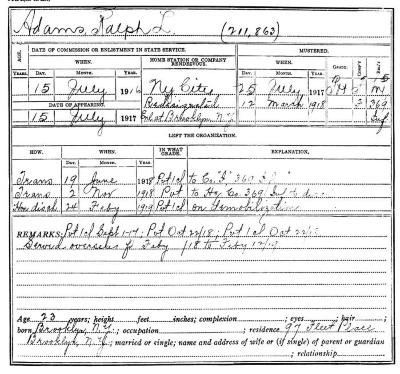 Adams, Ralph L. (211,863)
AGE. DATE OF COMMISSION OR ENLISTMENT IN STATE SERVICE. HOME STATION OR COMPANY RENDEZVOUS. MUSTERED. GRADE. COMP'Y
YEARS. DAY. WHEN. MONTH. YEAR. DAY. WHEN. MONTH. YEAR.
15 July 1916 NY City 25 July 1917 15
DATE OF APPEARING. Redesignated 12 March 1918 369
15 July 1917 Enl at Brooklyn, N.Y. Inf
LEFT THE ORGANIZATION.
HOW. WHEN. IN WHAT GRADE. EXPLANATION.
DAY. MONTH. YEAR.
Trans 19 June 1918 Pvt 1cl to Co "F" 369 Inf
Trans 2 Nov 1918 Pvt to Hq Co 369 Inf to d
Hon disch 24 Feby 1919 Pvt 1cl on demobilization
REMARKS: Pvt 1cl Sept 1-17; Pvt Oct 22/18; Pvt 1cl Oct
Served overseas f Feby /18 to Feby 12/19
Age 23 years; height feet inches; complexion ; eyes ; hair ;
born Brooklyn, N.Y. ; occupation ; residence 97 Fleet Place
Brooklyn, N.Y. ; married or single; name and address of wife or (if single) of parent or guardian
; relationship